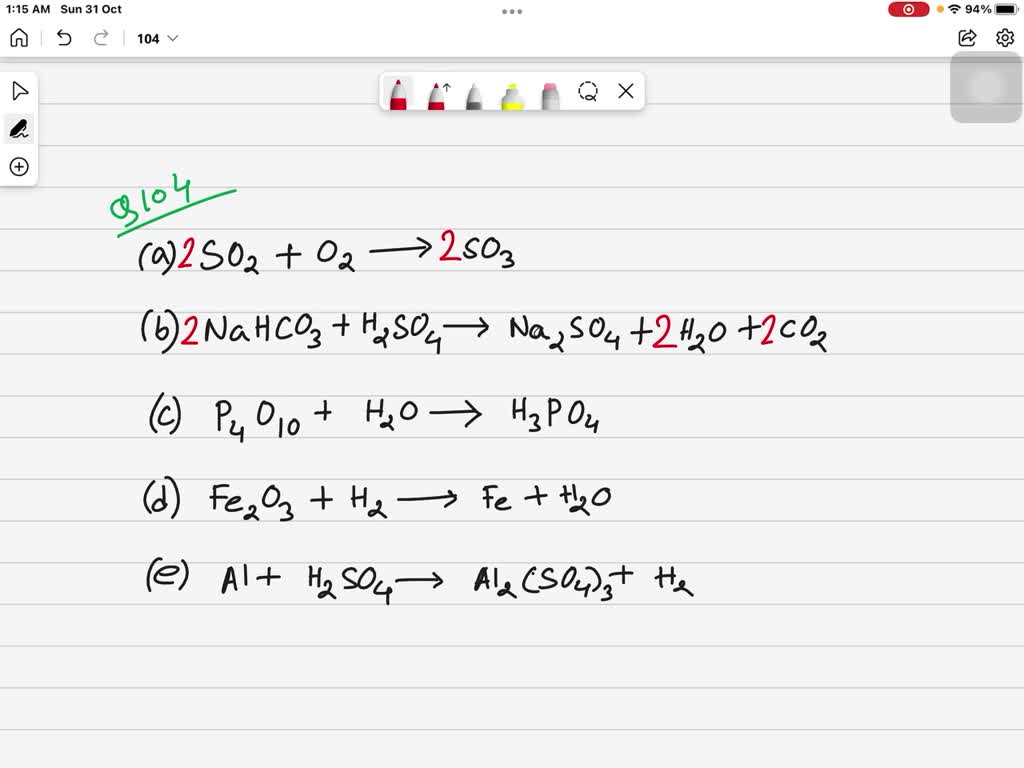 1:15 AM Sun 31 Oct
94%
104
Q104
(a) 2SO₂ + O₂ → 2SO₃
(b) 2NaHCO₃ + H₂SO₄ → Na₂SO₄ + 2H₂O + 2CO₂
(c) P₄O₁₀ + H₂O → H₃PO₄
(d) Fe₂O₃ + H₂ → Fe + H₂O
(e) Al + H₂SO₄ → Al₂(SO₄)₃ + H₂